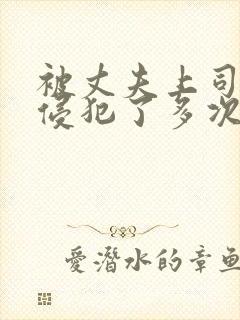 被丈夫上司
侵犯了多次
愛潛水的章魚